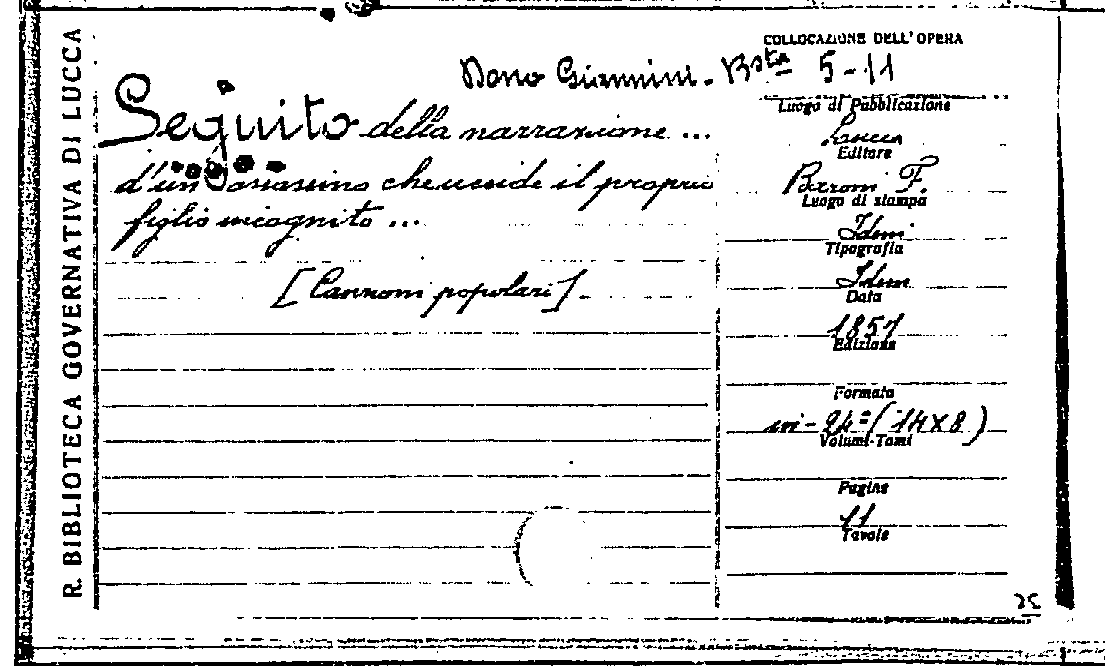 R. BIBLIOTECA GOVERNATIVA DI LUCCA
COLLOCAZIONE DELL'OPERA
Dono Giannini - Bsta 5-11
Seguito della narrazione ...
d'un assassino che uccide il proprio
figlio incognito ...
[Canzoni popolari]
Luogo di Pubblicazione
Lucca
Editore
Baroni F.
Luogo di stampa
Idem
Tipografia
Idem
Data
1857
Edizione
Formato
in-24º (14x8)
Volumi-Tomi
Pagine
11
Tavole
25